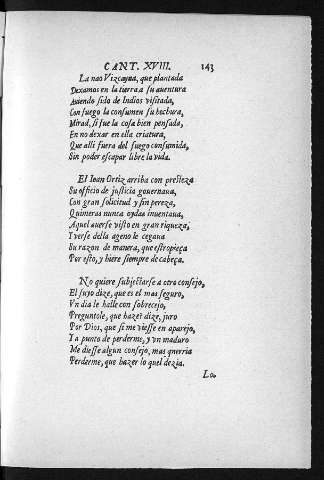 CANT. XVIII. 143
La nao Vizcayna, que plantada
Dexamos en la tierra a su auentura
Auiendo sido de Indios visitada,
Con fuego la consumen su hechura,
Mirad, si fue la cosa bien pensada,
En no dexar en ella criatura,
Que alli fuera del fuego consumida,
Sin poder escapar libre la vida.
El Ioan Ortiz arriba con presteza
Su officio de justicia gouernaua,
Con gran solicitud y sin pereza,
Quimeras nunca oydas inuentaua,
Aquel auerse visto en gran riqueza,
Y verse della ageno le cegaua
Su razon de manera, que estropieça
Por esto, y hiere siempre de cabeça.
No quiere subjectarse a otro consejo,
El suyo dize, que es el mas seguro,
Vn dia le halle con sobrecejo,
Preguntole, que haze? dize, juro
Por Dios, que si me viesse en aparejo,
Y a punto de perderme, y vn maduro
Me diesse algun consejo, mas querria
Perderme, que hazer lo quel dezia.
Lo